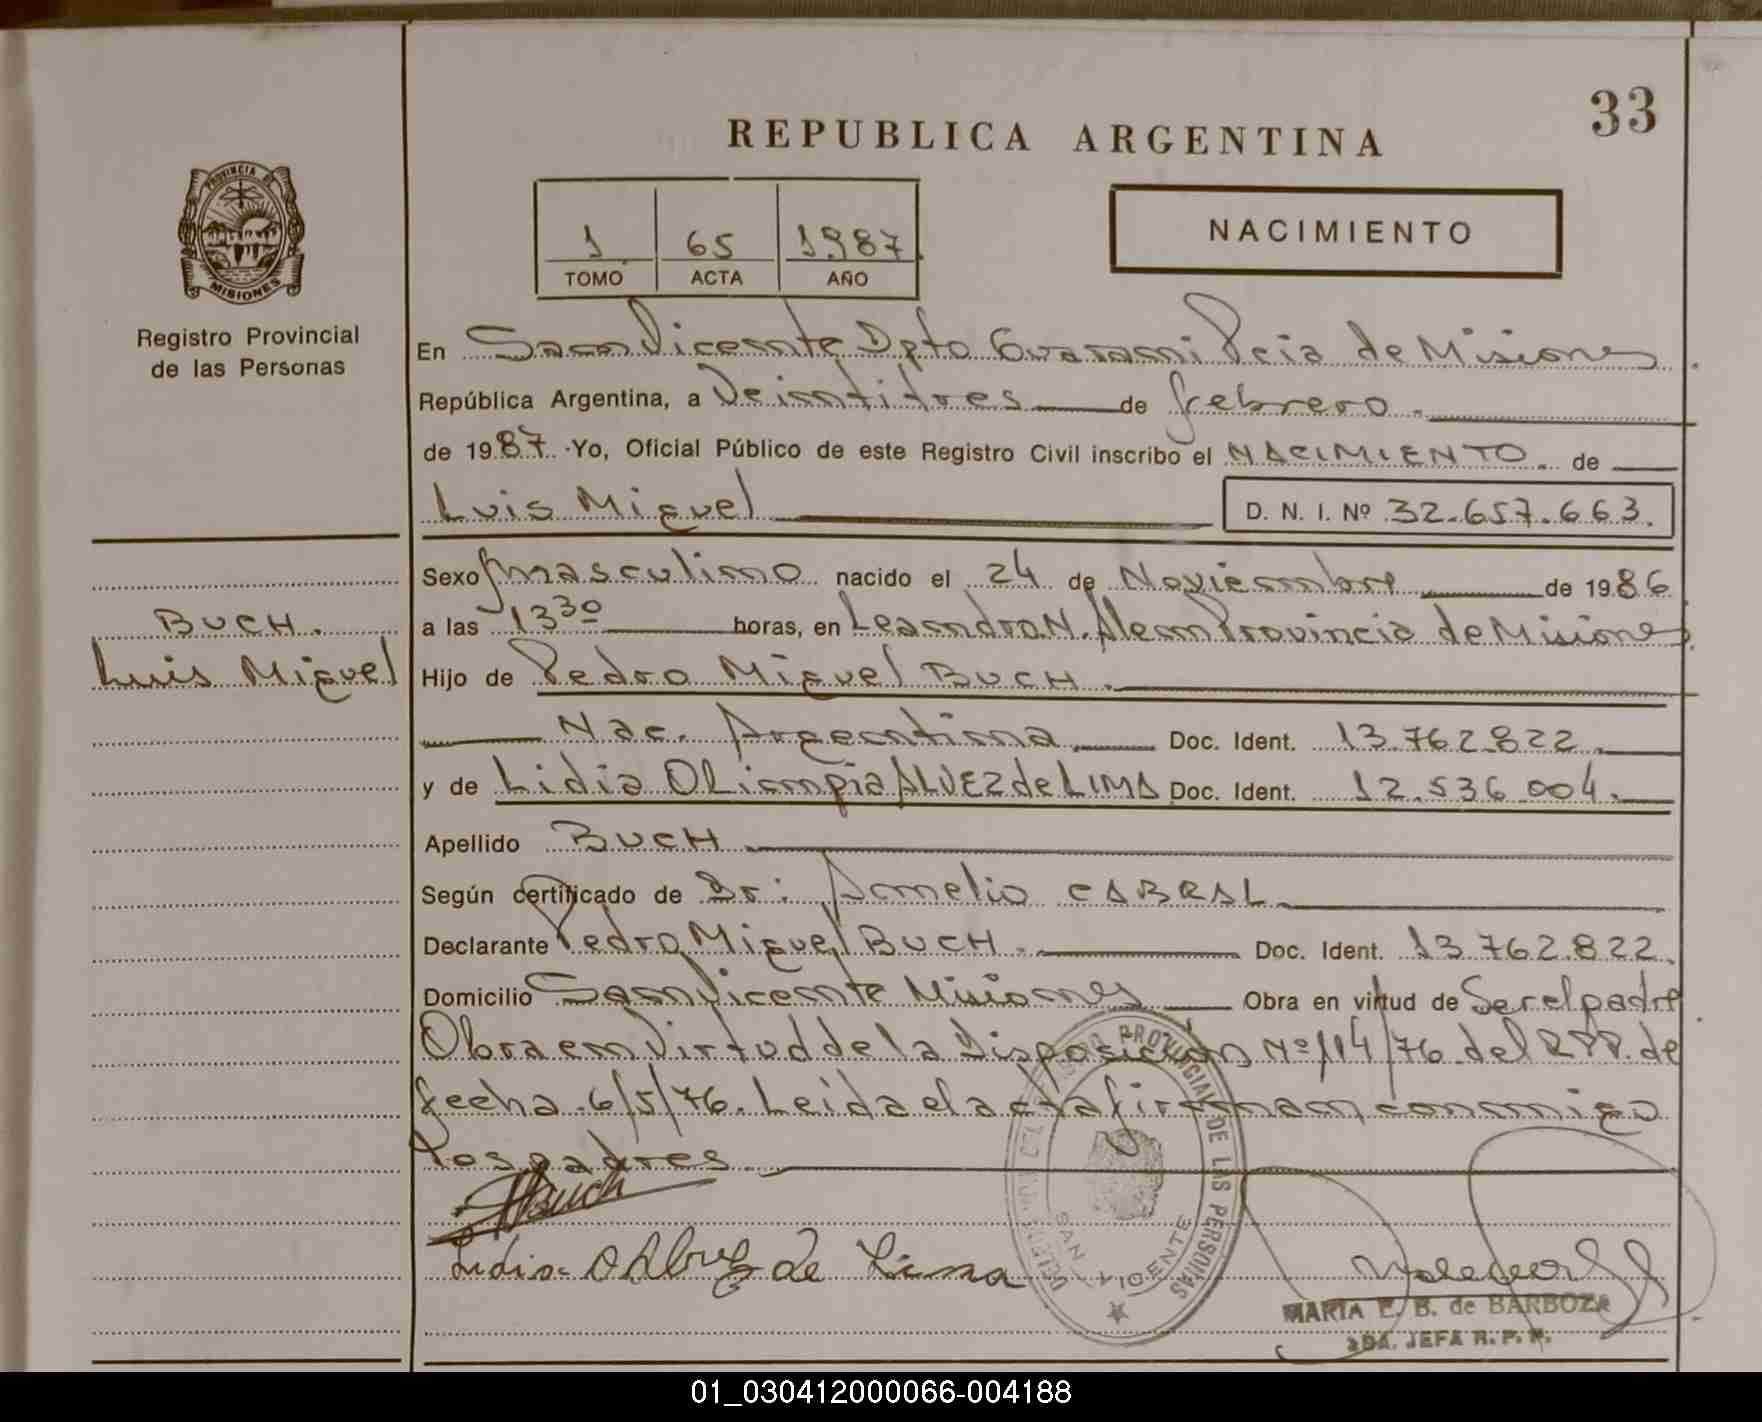 33
REPUBLICA ARGENTINA
PROVINCIA DE
MISIONES
Registro Provincial
de las Personas
1 65 1987
TOMO ACTA AÑO
NACIMIENTO
En San Vicente Dpto Guarani Pcia de Misiones
República Argentina, a Veintitres de febrero
de 1987 Yo, Oficial Público de este Registro Civil inscribo el NACIMIENTO de
Luis Miguel D. N. I. Nº 32.657.663.
Sexo masculino nacido el 24 de Noviembre de 1986
a las 13 30 horas, en Leandro N. Alem Provincia de Misiones
BUCH.
Luis Miguel
Hijo de Pedro Miguel BUCH.
Nac. Argentina Doc. Ident. 13.762.822
y de Lidia OLiempia ALVEZ de LIMA Doc. Ident. 12.536.004.
Apellido BUCH
Según certificado de Dr: Amelio CABRAL
Declarante Pedro Miguel BUCH. Doc. Ident. 13.762.822.
Domicilio San Vicente Misiones Obra en virtud de Ser el padre
Obra en Virtud de la Disposicion Nº 114/76 del RPP. de
fecha 6/5/76. Leida el acta firman conmigo
los padres.
Buch
Lidia de Lima
PROVINCIAL DE LAS PERSONAS
SAN VICENTE
MARIA E. B. de BARBOZA
JEFA R. P. P.
01_030412000066-004188